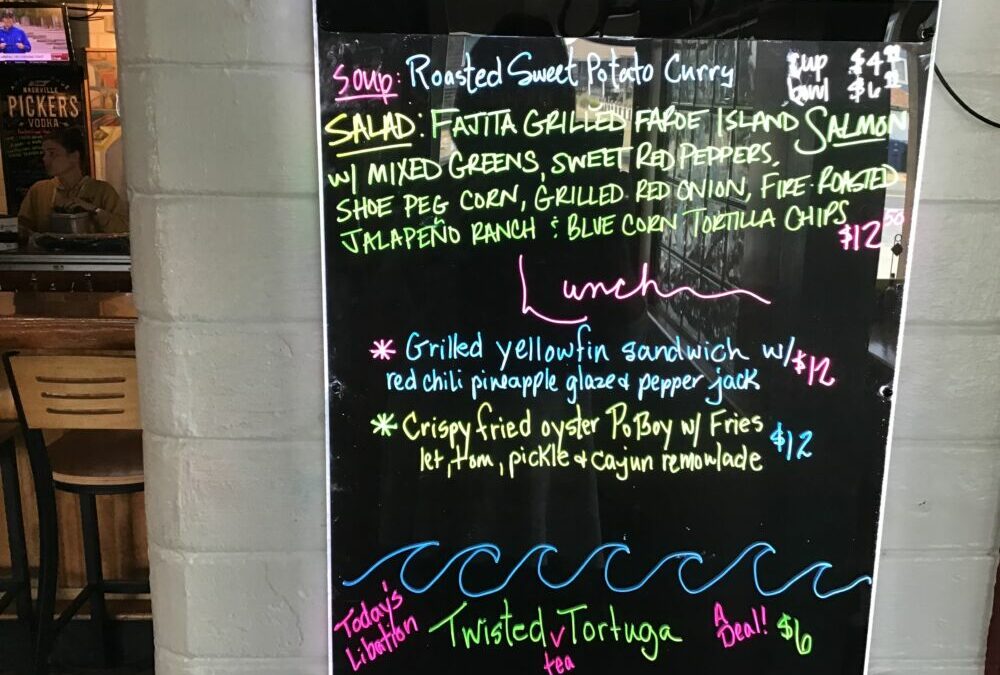 NASHVILLE
PICKERS
VODKA
Soup: Roasted Sweet Potato Curry
Cup $4
Bowl $6
SALAD: FAJITA GRILLED FAROE ISLAND SALMON
w/ MIXED GREENS, SWEET RED PEPPERS,
SHOE PEG CORN, GRILLED RED ONION, FIRE-ROASTED
JALAPEÑO RANCH & BLUE CORN TORTILLA CHIPS
$12.50
Lunch
* Grilled yellowfin sandwich w/ $12
red chili pineapple glaze & pepper jack
* Crispy fried oyster PoBoy w/ Fries $12
let, tom, pickle & cajun remoulade
Today's
Libation
Twisted Tortuga
tea
A
Deal! $6